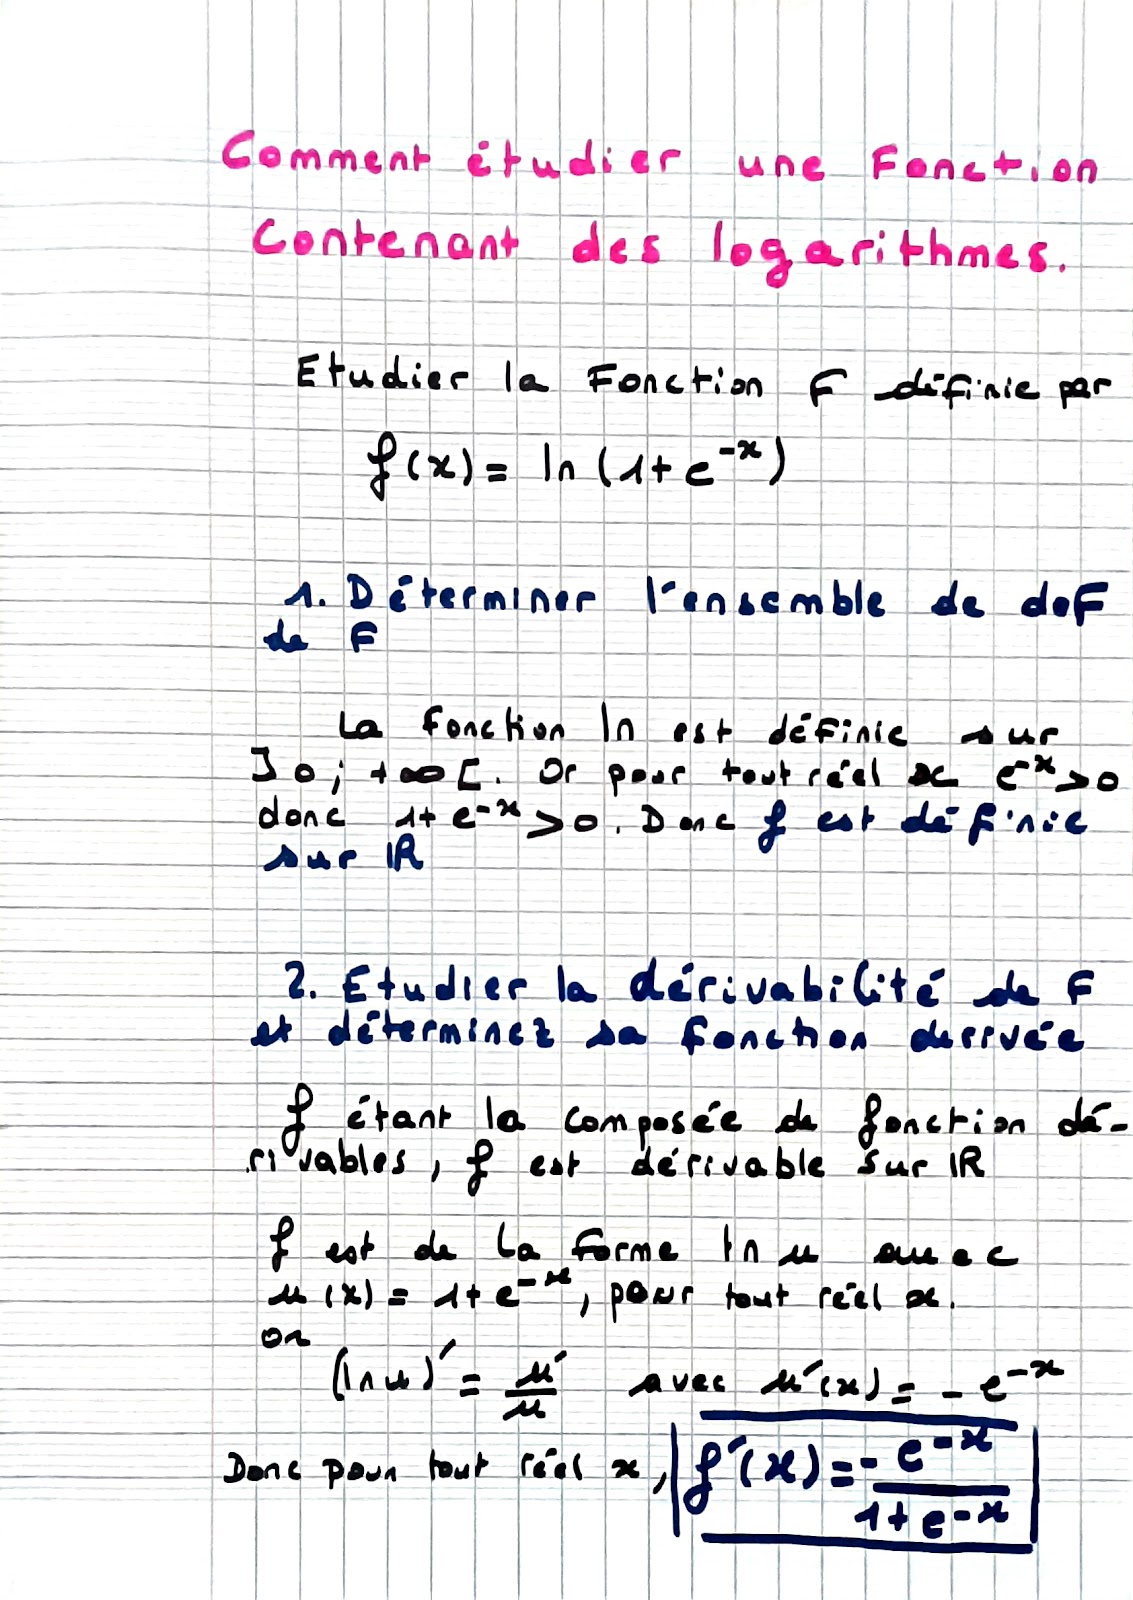 Comment étudier une Fonction
Contenant des logarithmes.
Etudier la Fonction F définie par
f(x) = ln (1+e^-x)
1. Déterminer l'ensemble de def
de F
La fonction ln est définie sur
]0; +∞[. Or pour tout réel x e^-x>0
donc 1+e^-x>0. Donc f est définie
sur ℝ
2. Etudier la dérivabilité de F
et déterminez sa fonction derivée
f étant la composée de fonction dé-
rivables, f est dérivable sur ℝ
f est de la forme ln u avec
u(x) = 1+e^-x, pour tout réel x.
or
(ln u)' = u'/u avec u'(x) = -e^-x
Donc pour tout réel x, f'(x) = -e^-x/1+e^-x